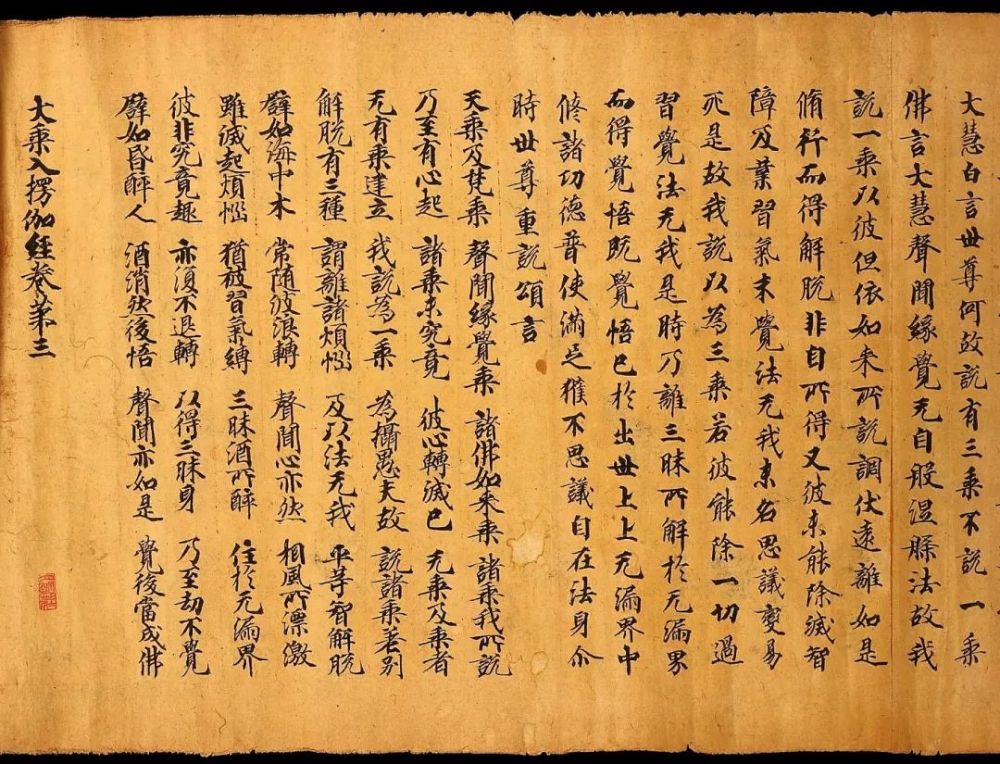 大慧白言世尊何故說有三乘不說一乘
佛言大慧聲聞緣覺无自般涅槃法故我
說一乘以彼但依如來所說調伏遠離如是
脩行而得解脫非自所得又彼未能除滅智
障及業習氣未覺法无我未名思議變易
死是故我說以為三乘若彼能除一切過
習覺法无我是時乃離三昧所醉於无漏界
而得覺悟既覺悟已於出世上上无漏界中
修諸功德普使滿足獲不思議自在法身尒
時世尊重說頌言
天乘及梵乘 聲聞緣覺乘 諸佛如來乘 諸乘我所說
乃至有心起 諸乘未究竟 彼心轉滅已 无乘及乘者
无有乘建立 我說為一乘 為攝愚夫故 說諸乘差別
解脫有三種 謂離諸煩惱 及以法无我 平等智解脫
譬如海中木 常隨波浪轉 聲聞心亦然 相風所漂激
雖滅起煩惱 猶被習氣縛 三昧酒所醉 住於无漏界
彼非究竟趣 亦復不退轉 以得三昧身 乃至劫不覺
譬如昏醉人 酒消然後悟 聲聞亦如是 覺後當成佛
大乘入楞伽經卷苐三